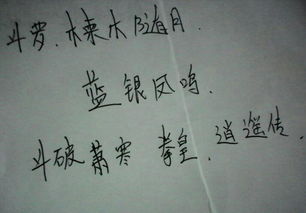 斗罗.木棶木随月.
蓝银凤鸣.
斗破萧寒 拳皇.逍遥传.